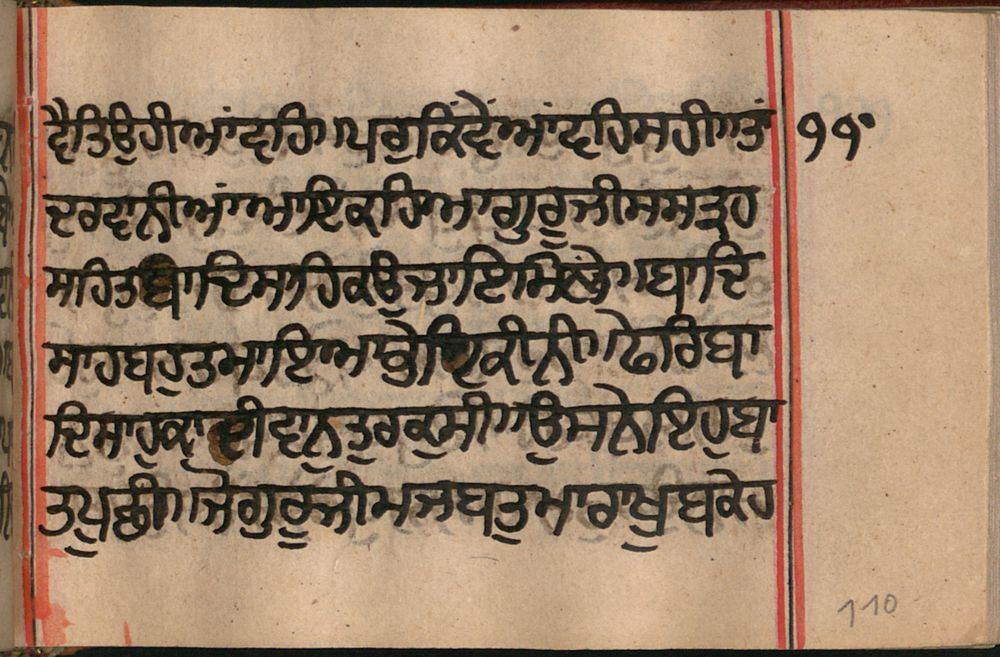 ਵੈਤਿਉਹੀਆਂਵਹਿ।ਪਰੁਕਿਂਵੇਂਆਂਵਹਿਸਹੀ।ਤਾਂ ੧੧੦
ਦਰਵਾਨੀਆਂਆਇਕਹਿਆਗੁਰੂਜੀਸਸਤ੍ਰਹ
ਸਾਹਿਤਬਾਦਿਸਾਹਿਕਉਜਾਇਮਿਲੇ।ਬਾਦਿ
ਸਾਹਬਹੁਤਮਾਇਆ ਕੀਨੀ।ਫੇਰਿਬਾ
ਦਿਸਾਹੁਕਾਦੀਵਾਨੁਤੁਰਕੁਸੀ।ਉਸਨੇਇਹੁਬਾ
ਤਪੁਛੀ।ਜੋਗੁਰੂਜੀਮਜਬਤੁਮਾਰਾਖੁਬਕੇਹ
110